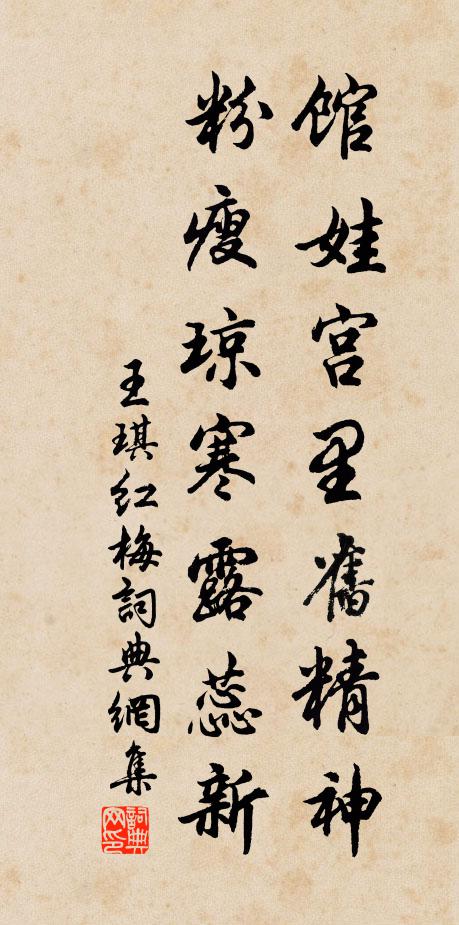 馆娃宫里舊精神
粉瘦琼寒露蕊新
王琪红梅詞典網集
詞典网印